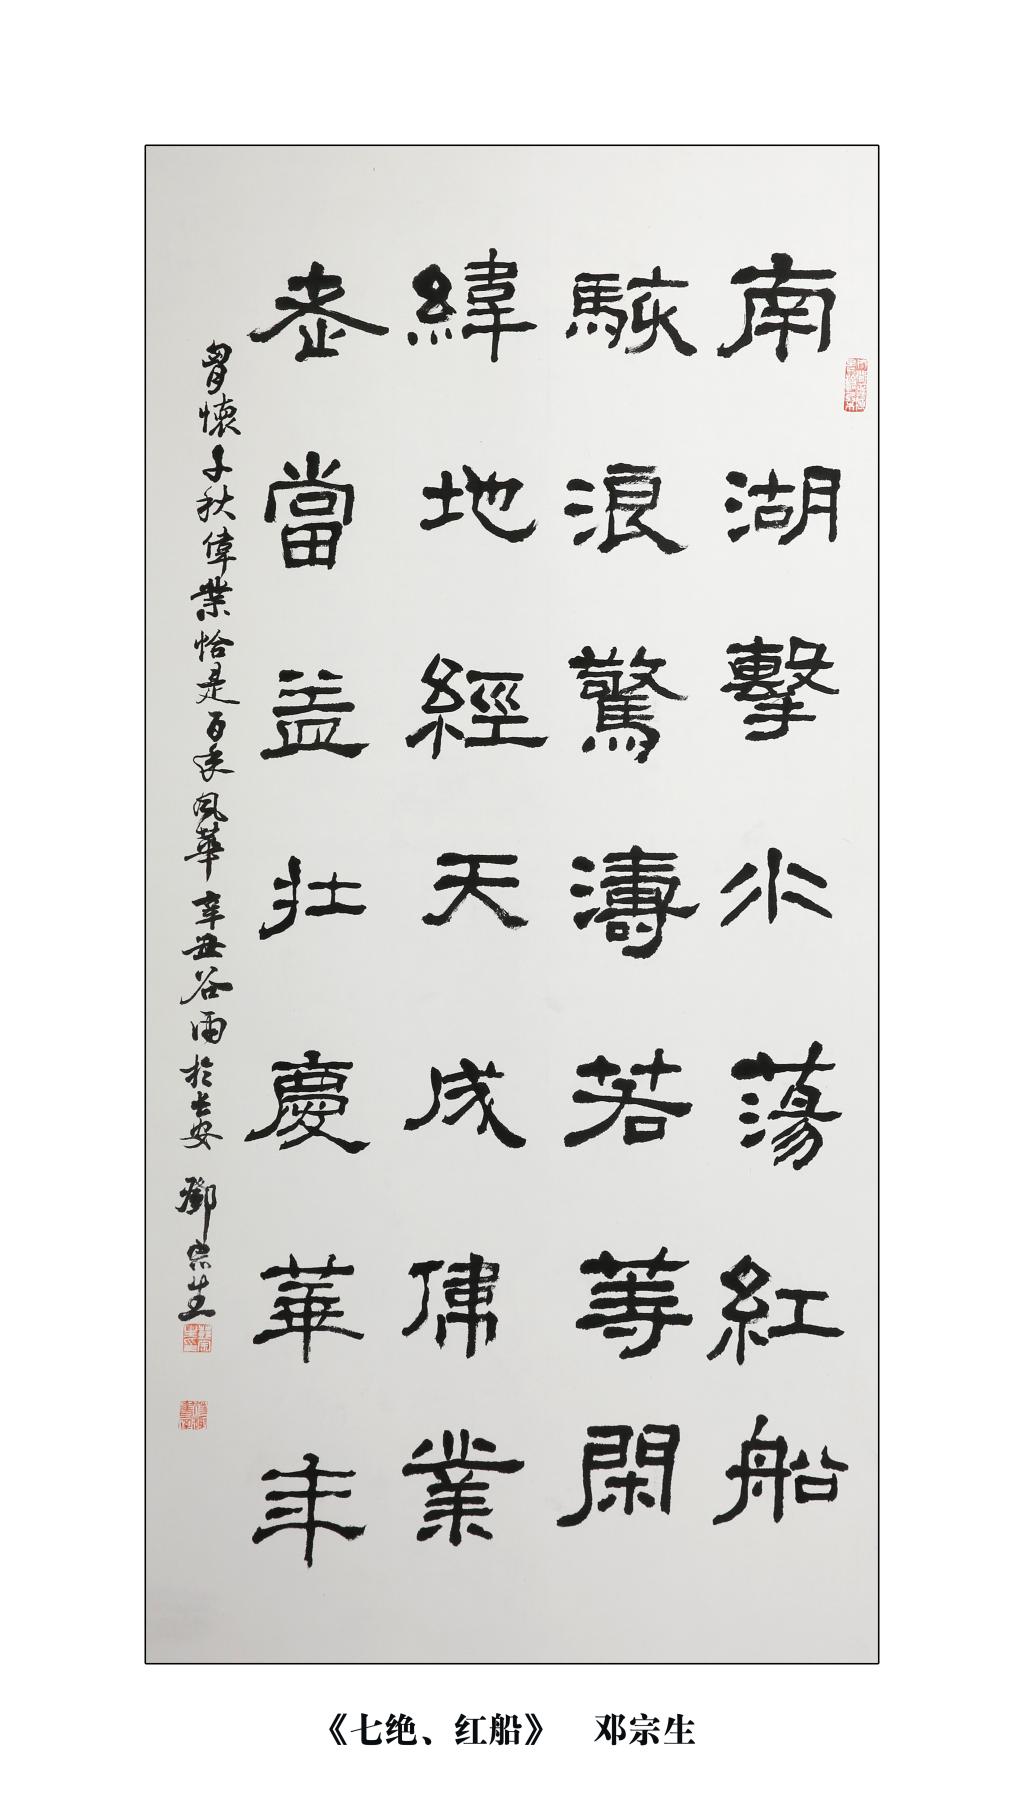 南湖擊水蕩紅船
駭浪驚濤若等閑
緯地經天成偉業
老當益壯慶華年
胷懷千秋偉業恰是百年風華辛丑谷雨於長安鄧宗生
《七绝、红船》 邓宗生